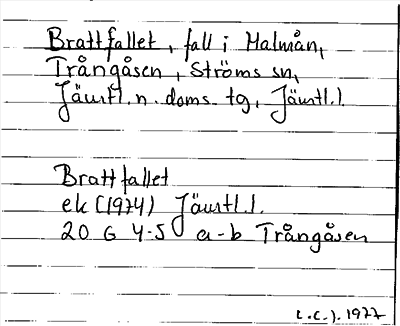 Brattfallet, fall i Malmån,
Trångåsen, Ströms sn,
Jämtl. n. doms. tg, Jämtl.l.
Brattfallet
ek (1974) Jämtl.l.
20 G 4-5 a-b Trångåsen
1977